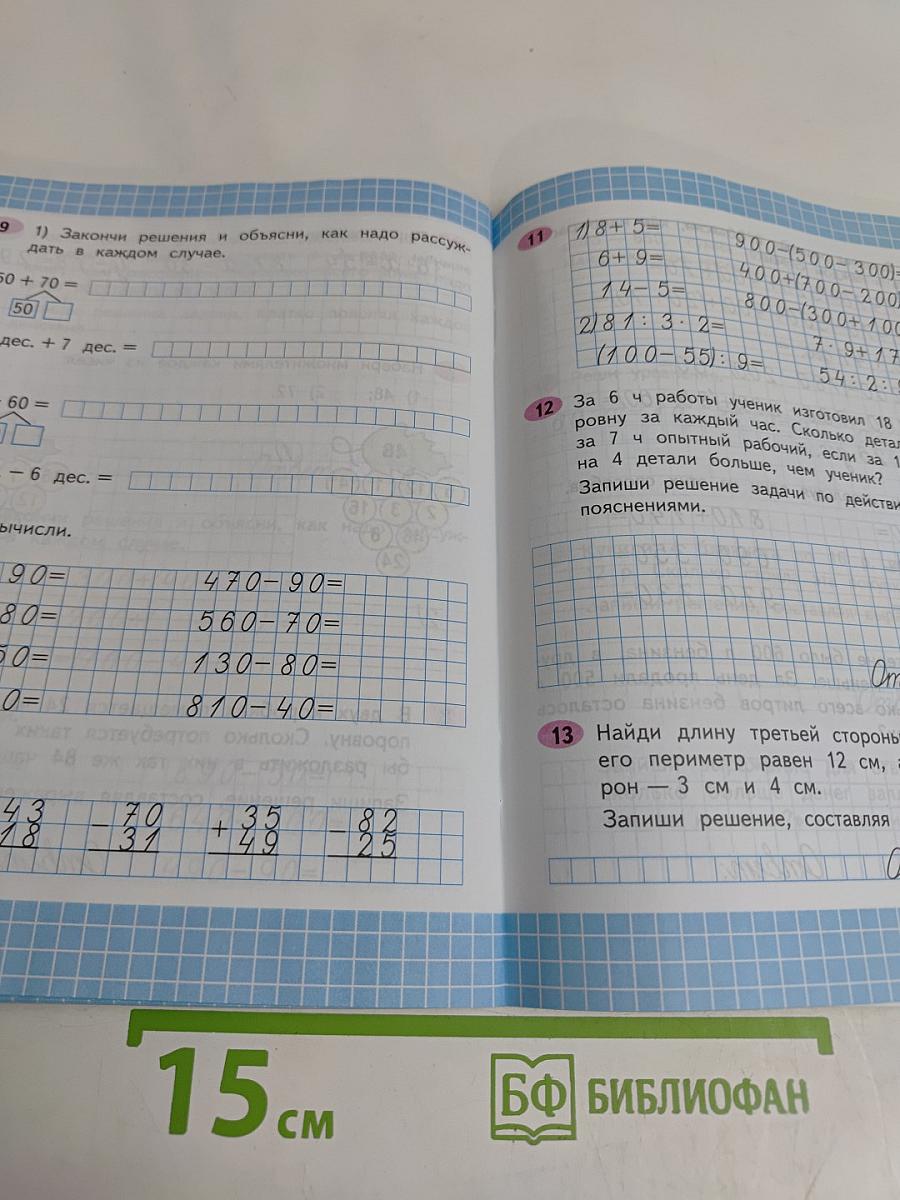 9 1) Закончи решения и объясни, как надо рассуж-
дать в каждом случае.
50 + 70 =
50
дес. + 7 дес. =
60 =
− 6 дес. =
ычисли.
90= 470−90=
80= 560−70=
50= 130−80=
0= 810−40=
43 −70 +35 −82
18 31 49 25
11 1) 8+5= 900−(500−300)=
6+9= 400+(700−200)
14−5= 800−(300+100
2) 81:3·2= 7·9+17
(100−55):9= 54:2:
12 За 6 ч работы ученик изготовил 18
ровну за каждый час. Сколько детал
за 7 ч опытный рабочий, если за 1
на 4 детали больше, чем ученик?
Запиши решение задачи по действи
пояснениями.
От
13 Найди длину третьей стороны
его периметр равен 12 см, а
рон — 3 см и 4 см.
Запиши решение, составляя
О
15 см
БФ БИБЛИОФАН